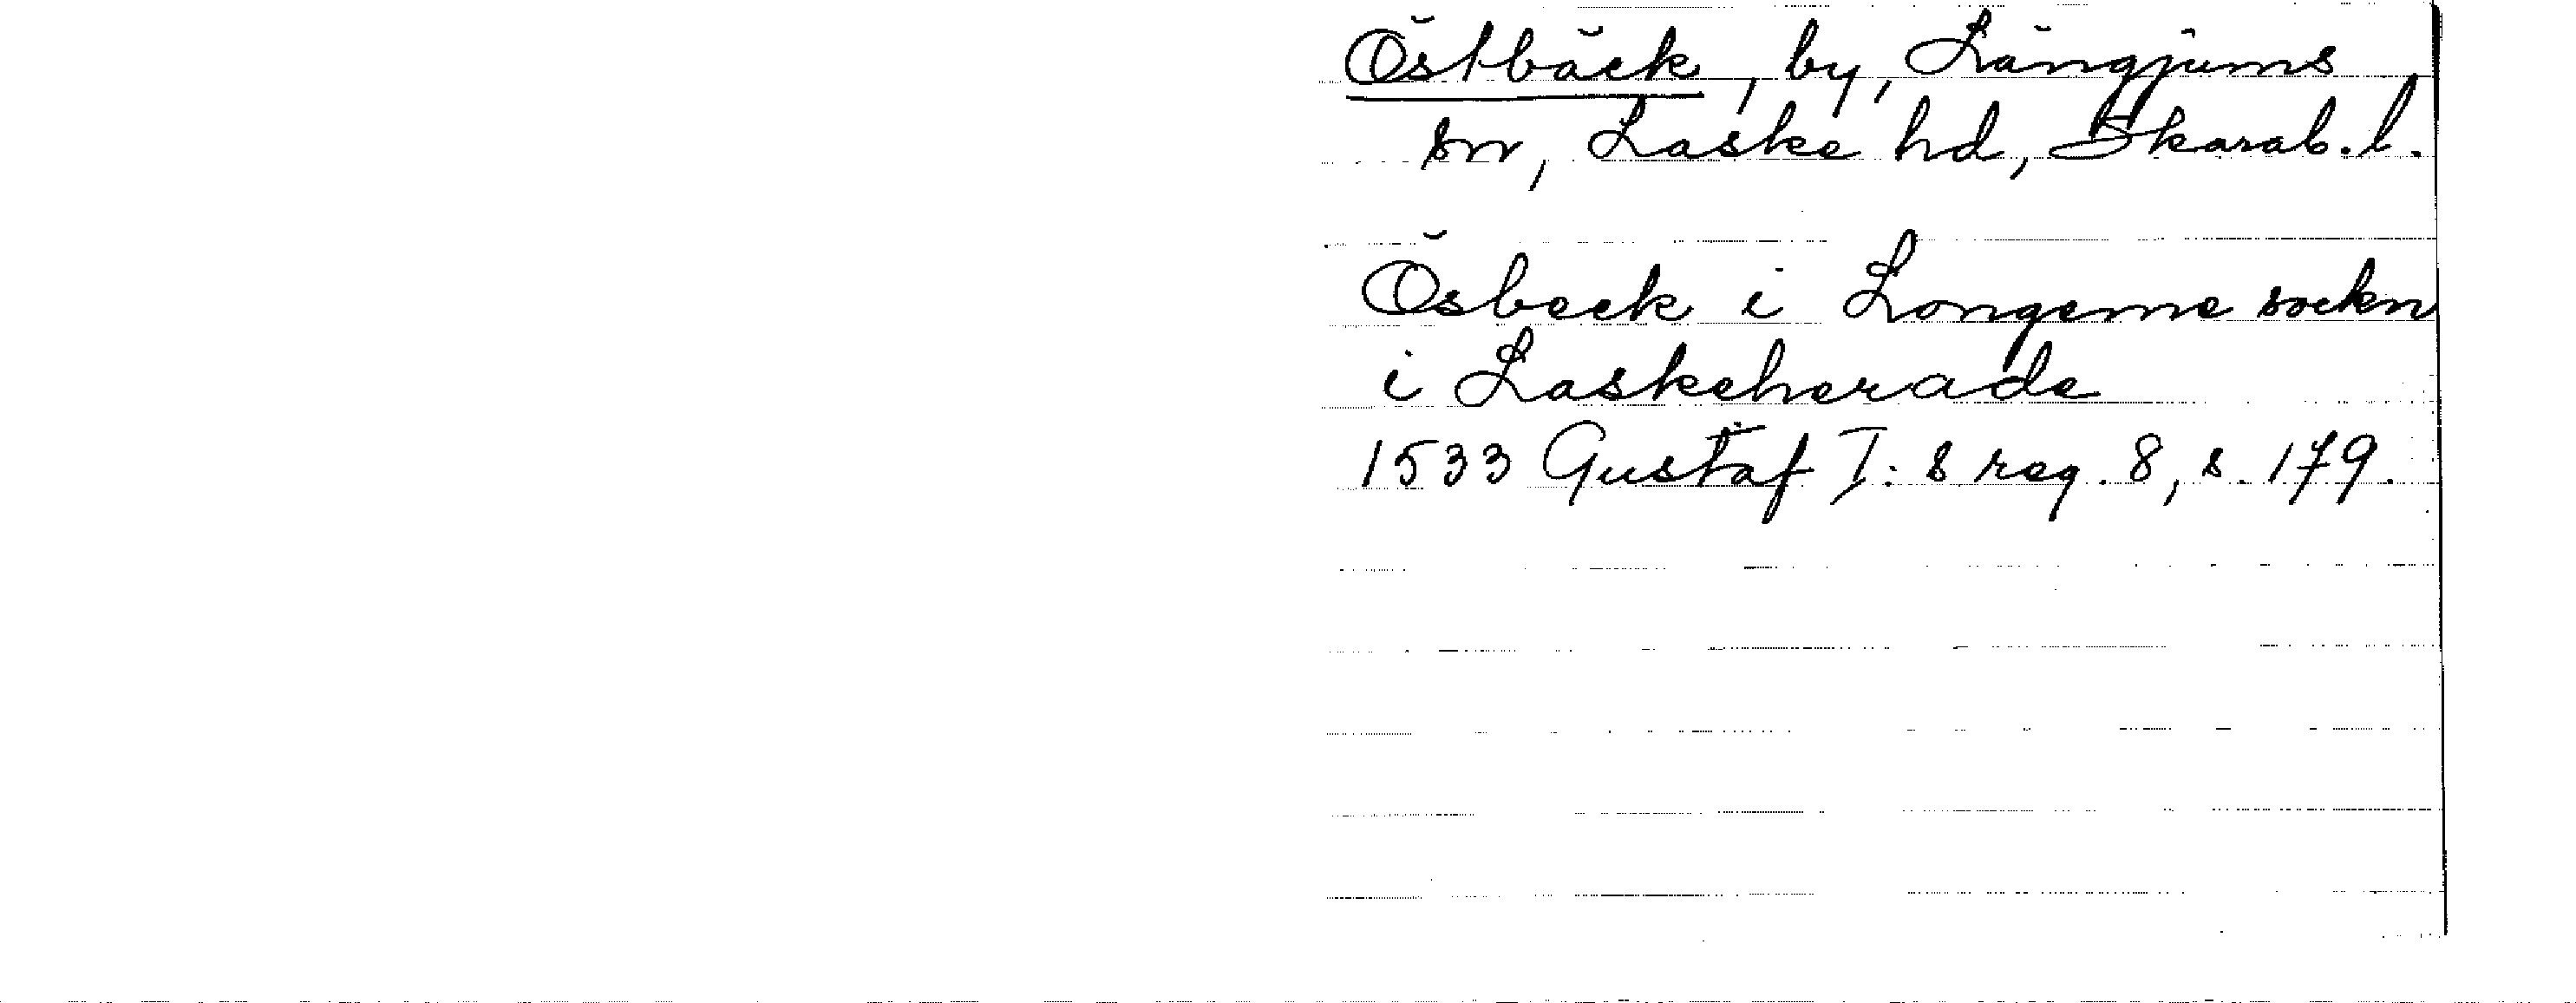 Östbäck, by, Längjums
sn, Laske hd, Skarab. l.
Ösbeck i Longeme sockn
i Laskeherade
1533 Gustaf I:s reg. 8, s. 179.